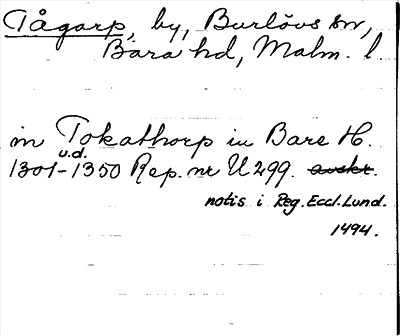 Tågarp, by, Burlövs sn,
Bara hd, Malm. l.
in Tokathorp in Bare H.
u.d.
1301-1350 Rep. nr U 299. avskr.
notis i Reg. Eccl. Lund.
1494.